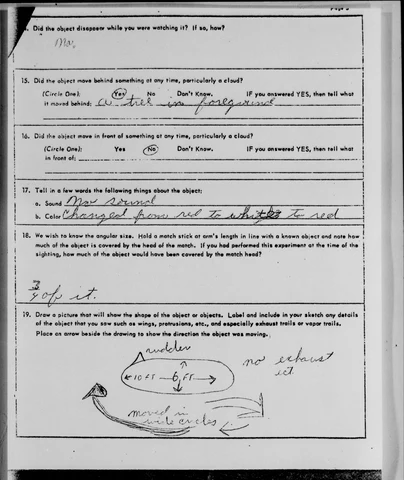 Did the object disappear while you were watching it? If so, how?
No.
15. Did the object move behind something at any time, particularly a cloud?
(Circle One): Yes No Don't Know. IF you answered YES, then tell what
it moved behind: a tree in foreground
16. Did the object move in front of something at any time, particularly a cloud?
(Circle One): Yes No Don't Know. IF you answered YES, then tell what
in front of:
17. Tell in a few words the following things about the object:
a. Sound No sound
b. Color Changed from red to white to red
18. We wish to know the angular size. Hold a match stick at arm's length in line with a known object and note how
much of the object is covered by the head of the match. If you had performed this experiment at the time of the
sighting, how much of the object would have been covered by the match head?
3/4 of it.
19. Draw a picture that will show the shape of the object or objects. Label and include in your sketch any details
of the object that you saw such as wings, protrusions, etc., and especially exhaust trails or vapor trails.
Place an arrow beside the drawing to show the direction the object was moving.
rudder
no exhaust
ect.
10 FT 6 FT
moved in
wide circles